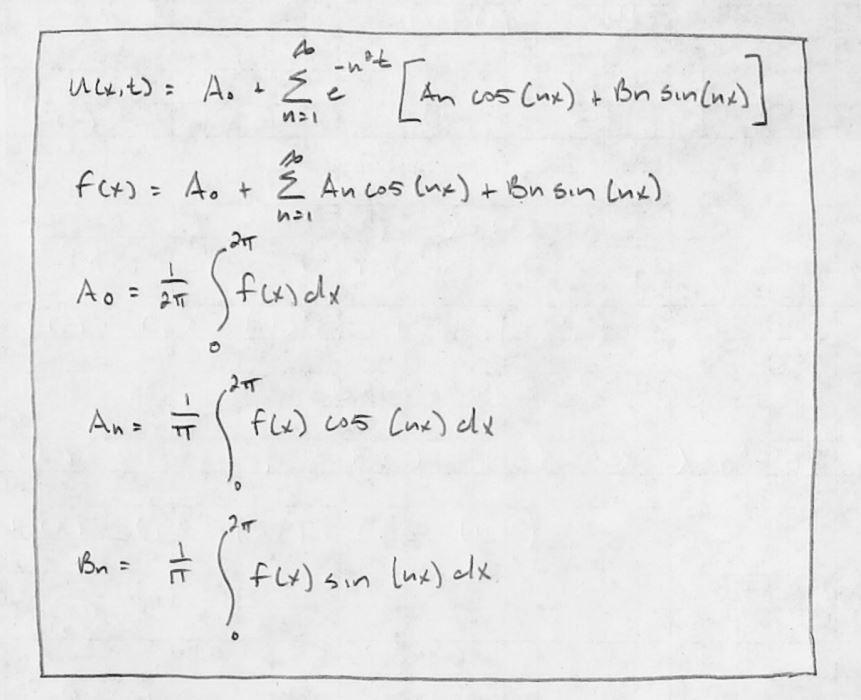 u(x,t) = A₀ + ∑_{n=1}^{∞} e^{-n²t} [An cos(nx) + Bn sin(nx)]
f(x) = A₀ + ∑_{n=1}^{∞} An cos(nx) + Bn sin(nx)
A₀ = 1/2π ∫₀^{2π} f(x) dx
An = 1/π ∫₀^{2π} f(x) cos(nx) dx
Bn = 1/π ∫₀^{2π} f(x) sin(nx) dx